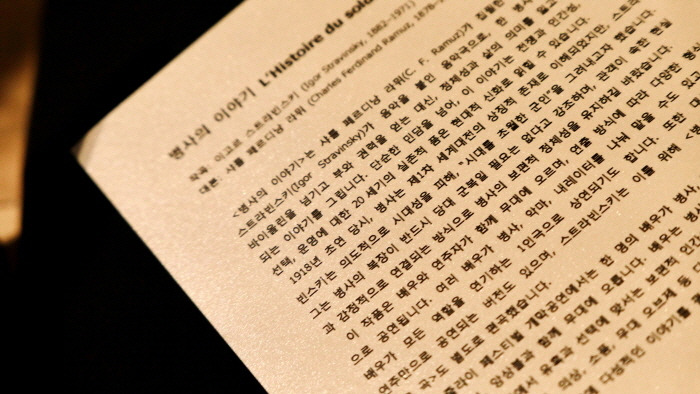 병사의 이야기 L'Histoire du
작곡: 이고르 스트라빈스키 (Igor Stravinsky, 1882–1971)
대본: 샤를 페르디낭 라뮈 (Charles Ferdinand Ramuz, 1878-
<병사의 이야기>는 샤를 페르디낭 라뮈(C. F. Ramuz)가 집필한
스트라빈스키(Igor Stravinsky)가 음악을 붙인 음악극으로, 한 병사
바이올린을 넘기고 부와 권력을 얻는 대신, 정체성과 삶의 의미를 잃고
되는 이야기를 그립니다. 단순한 민담을 넘어, 이 이야기는 전쟁과 인간성,
선택, 운명에 대한 20 세기의 실존적 품은 현대적 신화로 읽힐 수 있습니다.
1918년 초연 당시, 병사는 제1차 세계대전의 상징적 존재로 이해되었지만, 스트라
빈스키는 의도적으로 시대성을 피해, "시대를 초월한 군인"을 그려내고자 했습니다.
그는 병사의 복장이 반드시 당대 군복일 필요는 없다고 강조하며, 관객이 속한 현실
과 감정적으로 연결되는 방식으로 병사의 보편적 정체성을 유지하길 바랐습니다.
이 작품은 배우와 연주자가 함께 무대에 오르며, 연출 방식에 따라 다양한 형
으로 공연됩니다. 여러 배우가 병사, 악마, 내레이터를 나눠 맡을 수도
배우가 모든 역할을 연기하는 1인극으로 상연되기도 합니다. 또한
연주만으로 공연되는 버전도 있으며, 스트라빈스키는 이를 위해 <
곡>도 별도로 편곡했습니다.
페스티벌 개막공연에서는 한 명의 배우가 병사
앙상블과 함께 무대에 오릅니다. 배우는
에서 유혹과 선택에 맞서는 보편적
의상, 소품, 무대 오브제
다성적인 이야기를